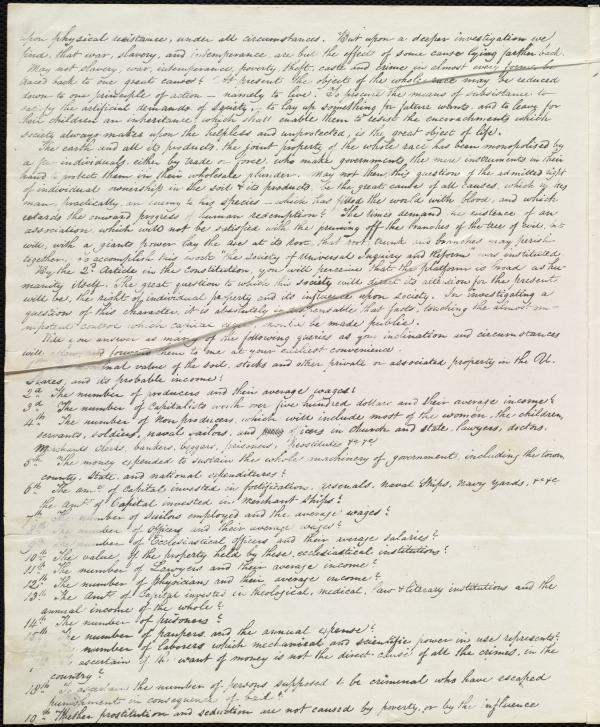 upon physical resistance, under all circumstances. But upon a deeper investigation we
find, that war, slavery, and intemperance, are but the effect of some cause lying farther back.
May not slavery, war, intemperance, poverty, theft, caste and crime in almost every form, be
traced back to one great cause? At present the object of the whole race may be reduced
down to one principle of action — namely to live. To procure the means of subsistance to
satisfy the artificial demands of society, to lay up something for future wants, and to leave for
their children an inheritance, which shall enable them to resist the encroachments which
society always makes upon the helpless and unprotected, is the great object of life.
The earth and all its products, the joint property of the whole race has been monopolised by
a few individuals, either by trade or force, who make governments the mere instruments in their
hands to protect them in their wholesale plunder. May not then this question of the admitted right
of individual ownership in the soil & its products, be the great cause of all causes, which makes
man, practically, an enemy to his species — which has filled the world with blood, and which
retards the onward progress of human redemption? The times demand the existence of an
association, which will not be satisfied with the pruning off the branches of the tree of evil, but
will, with a giants power lay the axe at its root, that root, trunk and branches may perish
together. To accomplish this work the Society of Universal Inquiry and Reform was instituted.
By the 2d Article in the constitution, you will perceive that the platform is broad as hu-
manity itself. The great question to which this society will direct its attention for the present
will be, the right of individual property and its influence upon society. In investigating a
question of this character, it is absolutely indispensable that facts, touching the almost un-
control which capital should be made public.
Will you answer as many of the following queries as your inclination and circumstances
will allow, and forward them to me at your earliest convenience.
nominal value of the soil, stocks and other private or associated property in the U.
States, and its probable income?
2d The number of producers and their average wages?
3d The number of Capitalists worth over five hundred dollars and their average income?
4th The number of Non producers, which will include most of the women, the children,
servants, soldiers, naval sailors, and officers in Church and state, lawyers, doctors,
Merchants, Clerks, bankers, beggars, prisoners, Prostitutes &c &c
5th The money expended to sustain the whole machinery of government, including the town,
county, State, and national expenditures?
6th The amt. of Capital invested in fortifications, arsenals, naval Ships, navy yards, &c &c
the amt of Capital invested in Merchant Ships?
7th The number of Sailors employed and the average wages?
8th The number of officers and their average wages?
9th The number of Ecclesiastical officers and their average salaries?
10th The value of the property held by these ecclesiastical institutions?
11th The number of Lawyers and their average income?
12th The number of physicians and their average income?
13th The amt of Capital invested in theological, medical, law & literary institutions and the
annual income of the whole?
14th The number of prisoners?
15th The number of paupers, and the annual expense?
number of laborers which mechanical and scientific power in use represents?
To ascertain if the want of money is not the direct cause of all the crimes, in the
country?
18th To ascertain the number of persons supposed to be criminal who have escaped
punishment in consequence of bail?
19th Whether prostitution and seduction are not caused by poverty, or by the influence